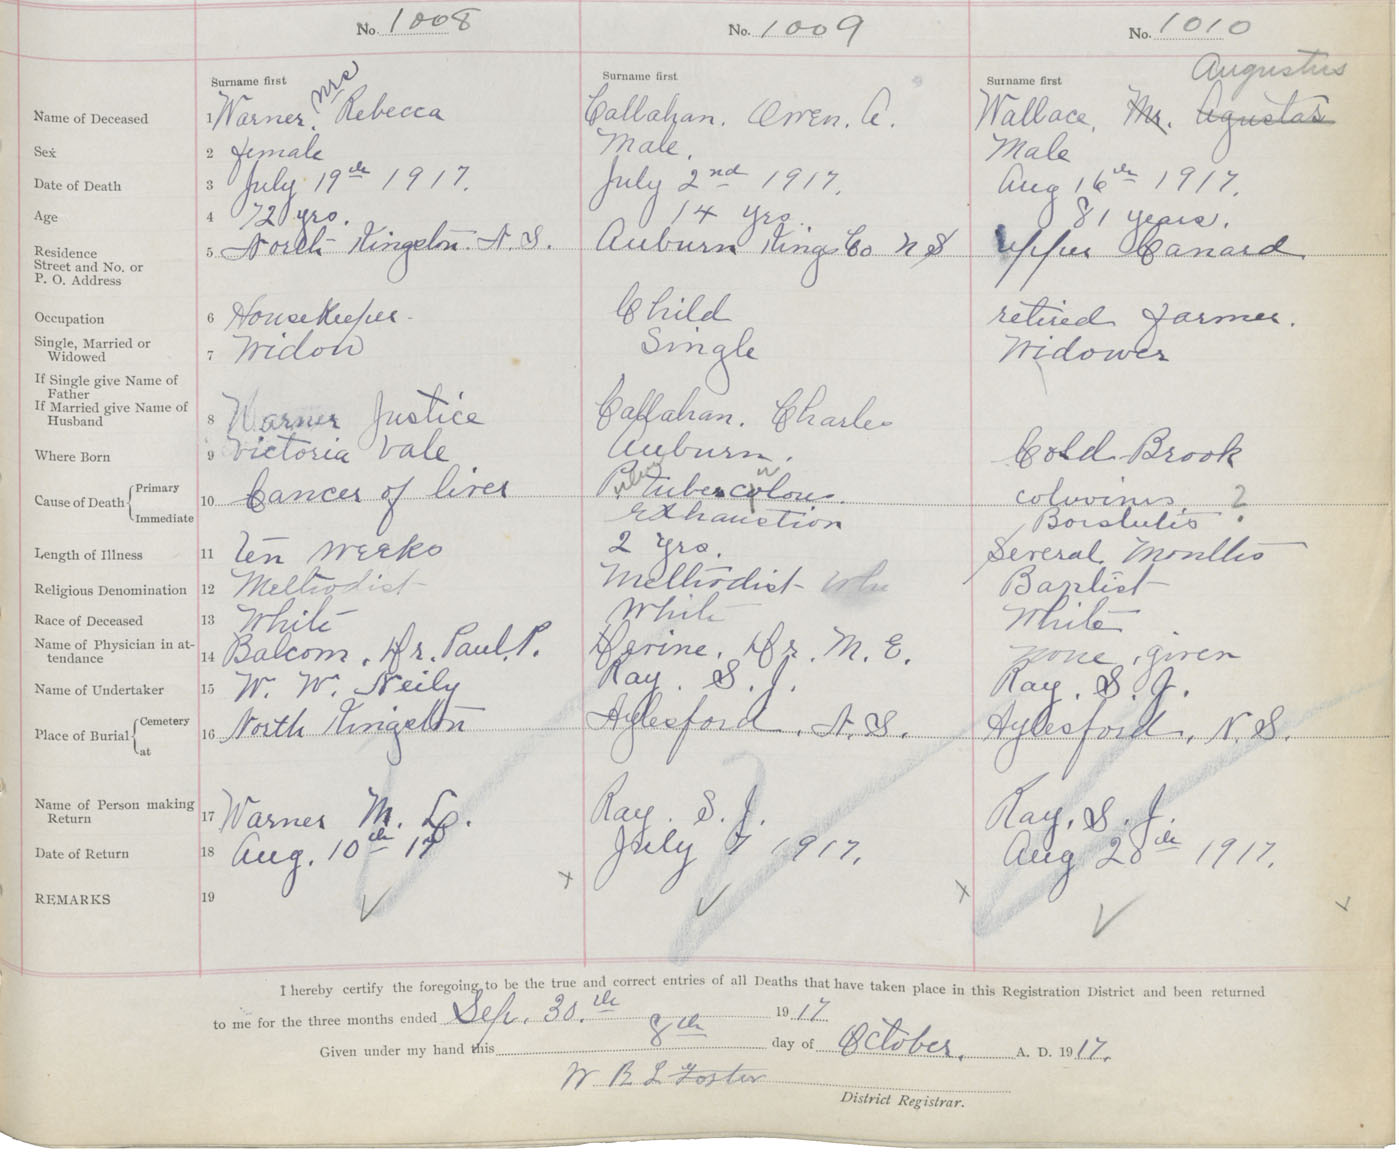 No. 1008 No. 1009 No. 1010
Surname first Surname first Surname first Augustus
Name of Deceased 1 Warner, Mrs Rebecca Callahan, Owen. A. Wallace, Mr. Agustas
Sex 2 female Male. Male
Date of Death 3 July 19th 1917. July 2nd 1917. Aug 16th 1917.
Age 4 72 yrs. 14 yrs. 81 years.
Residence
Street and No. or
P. O. Address 5 North Kingston. N. S. Auburn Kings Co N S Upper Canard
Occupation 6 Housekeeper. Child retired farmer.
Single, Married or
Widowed 7 Widow Single Widower
If Single give Name of
Father
If Married give Name of
Husband 8 Warner Justice Callahan, Charles
Where Born 9 Victoria Vale Auburn. Cold Brook
Cause of Death { Primary 10 Cancer of liver tuberculous. ?
Immediate exhaustion
Length of Illness 11 ten weeks 2 yrs. Several. Months
Religious Denomination 12 Methodist Methodist Whi Baptist
Race of Deceased 13 White White White
Name of Physician in at-
tendance 14 Balcom, Dr. Paul. P. Devine, Dr. M. E. none given
Name of Undertaker 15 W. W. Neily Ray. S. J. Ray. S. J.
Place of Burial { Cemetery
at 16 North Kingston Aylesford, N. S. Aylesford, N. S.
Name of Person making
Return 17 Warner M. L. Ray. S. J. Ray. S. J.
Date of Return 18 Aug. 10th 17 July 7 1917. Aug 28th 1917.
REMARKS 19
I hereby certify the foregoing to be the true and correct entries of all Deaths that have taken place in this Registration District and been returned
to me for the three months ended Sep. 30th 1917
Given under my hand this 8th day of October. A. D. 1917.
W B L Foster
District Registrar.